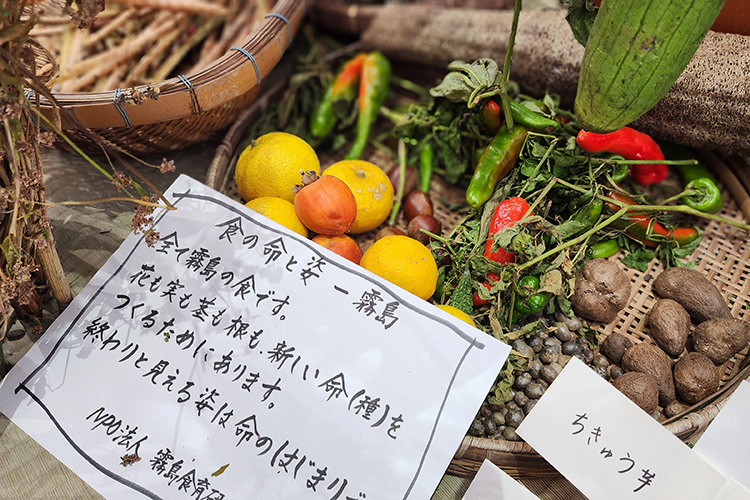 食の命と姿 ー霧島
全て霧島の食です。
花も実も茎も根も、新しい命(種)を
つくるためにあります。
終わりと見える姿は命のはじまりで
NPO法人 霧島食育研
ちきゅう芋